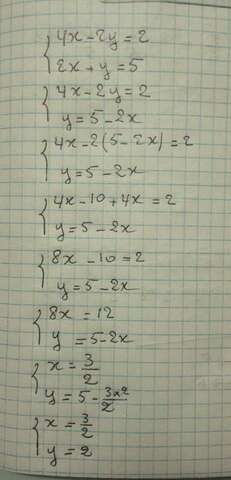 4x - 2y = 2
2x + y = 5
4x - 2y = 2
y = 5 - 2x
4x - 2(5 - 2x) = 2
y = 5 - 2x
4x - 10 + 4x = 2
y = 5 - 2x
8x - 10 = 2
y = 5 - 2x
8x = 12
y = 5 - 2x
x = 3/2
y = 5 - 3x2/2
x = 3/2
y = 2